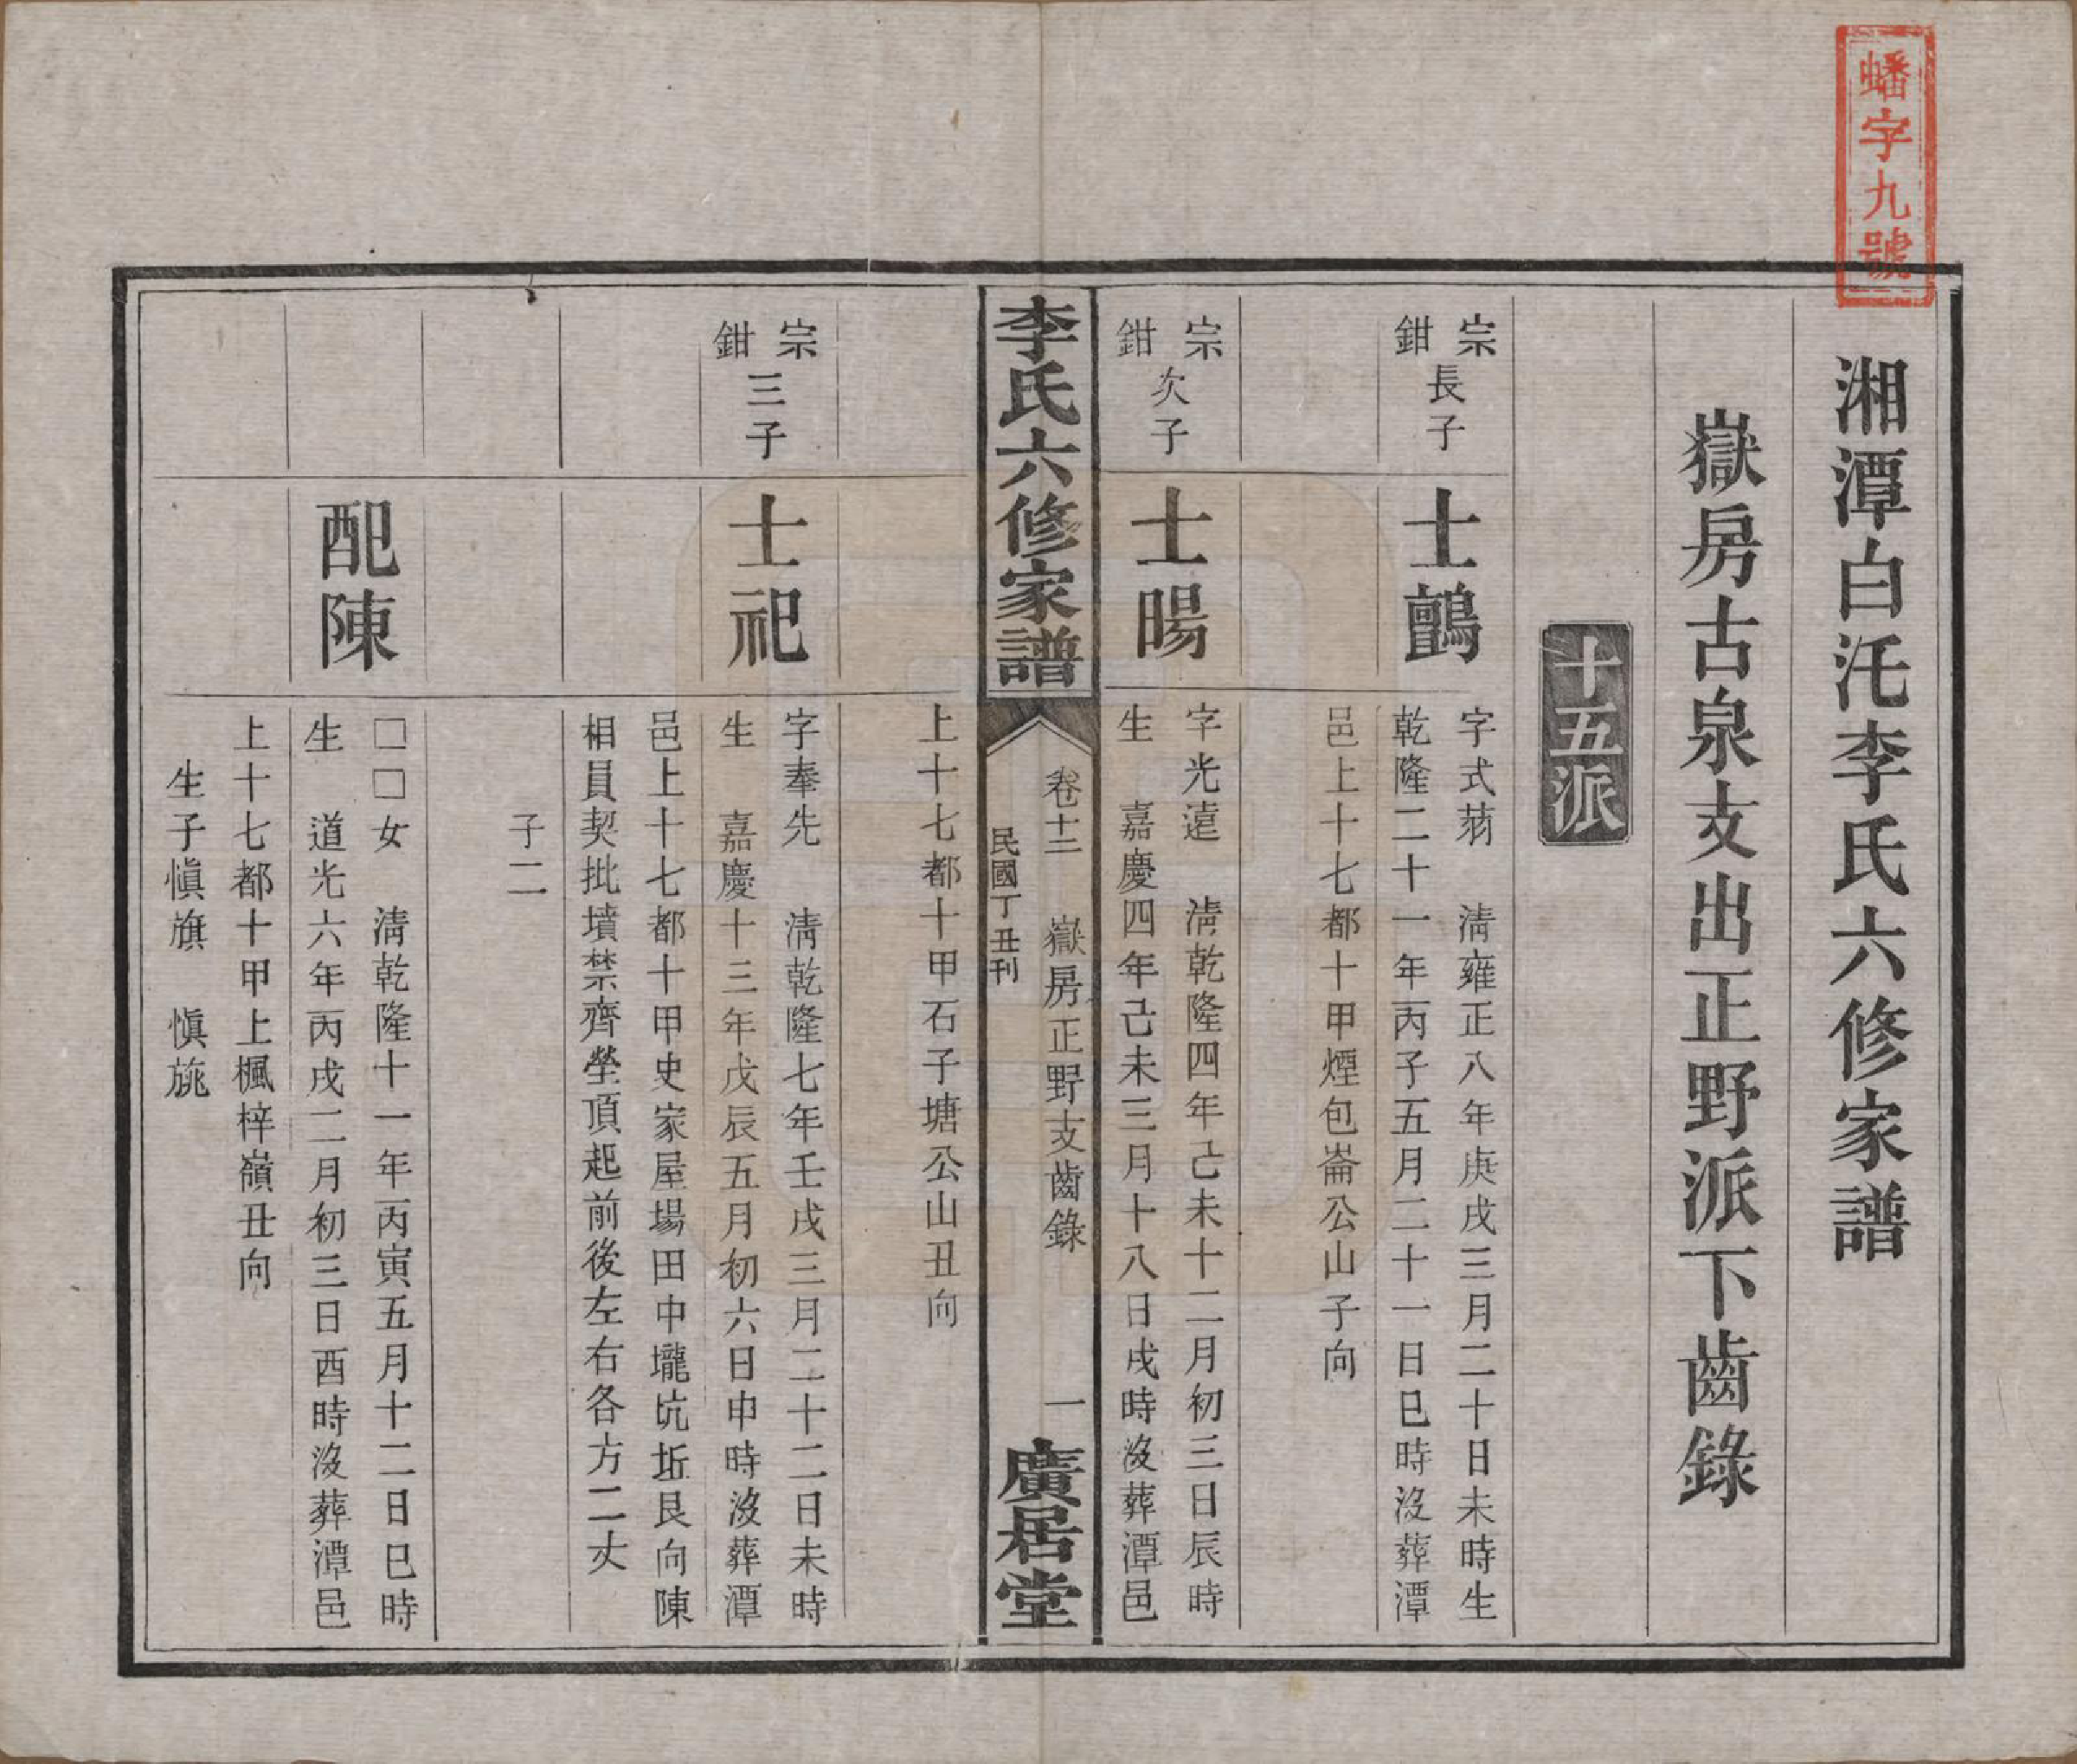 蟠字九號
湘潭白汑李氏六修家譜
嶽房古泉支出正野派下齒錄
十五派
宗鉗長子
士鸇
字式蒻　清雍正八年庚戌三月二十日未時生
乾隆二十一年丙子五月二十一日巳時沒葬潭
邑上十七都十甲煙包崙公山子向
宗鉗次子
士暘
字光遠　清乾隆四年己未十二月初三日辰時
生　嘉慶四年己未三月十八日戌時沒葬潭邑
李氏六修家譜
卷十二　嶽房正野支齒錄　一
民國丁丑刊
廣居堂
上十七都十甲石子塘公山丑向
宗鉗三子
士祀
字奉先　清乾隆七年壬戌三月二十二日未時
生　嘉慶十三年戊辰五月初六日申時沒葬潭
邑上十七都十甲史家屋場田中壠坑坵艮向陳
相員契批墳禁齊塋頂起前後左右各方二丈
子二
配陳
□□女　清乾隆十一年丙寅五月十二日巳時
生　道光六年丙戌二月初三日酉時沒葬潭邑
上十七都十甲上楓梓嶺丑向
生子愼旗　愼旐